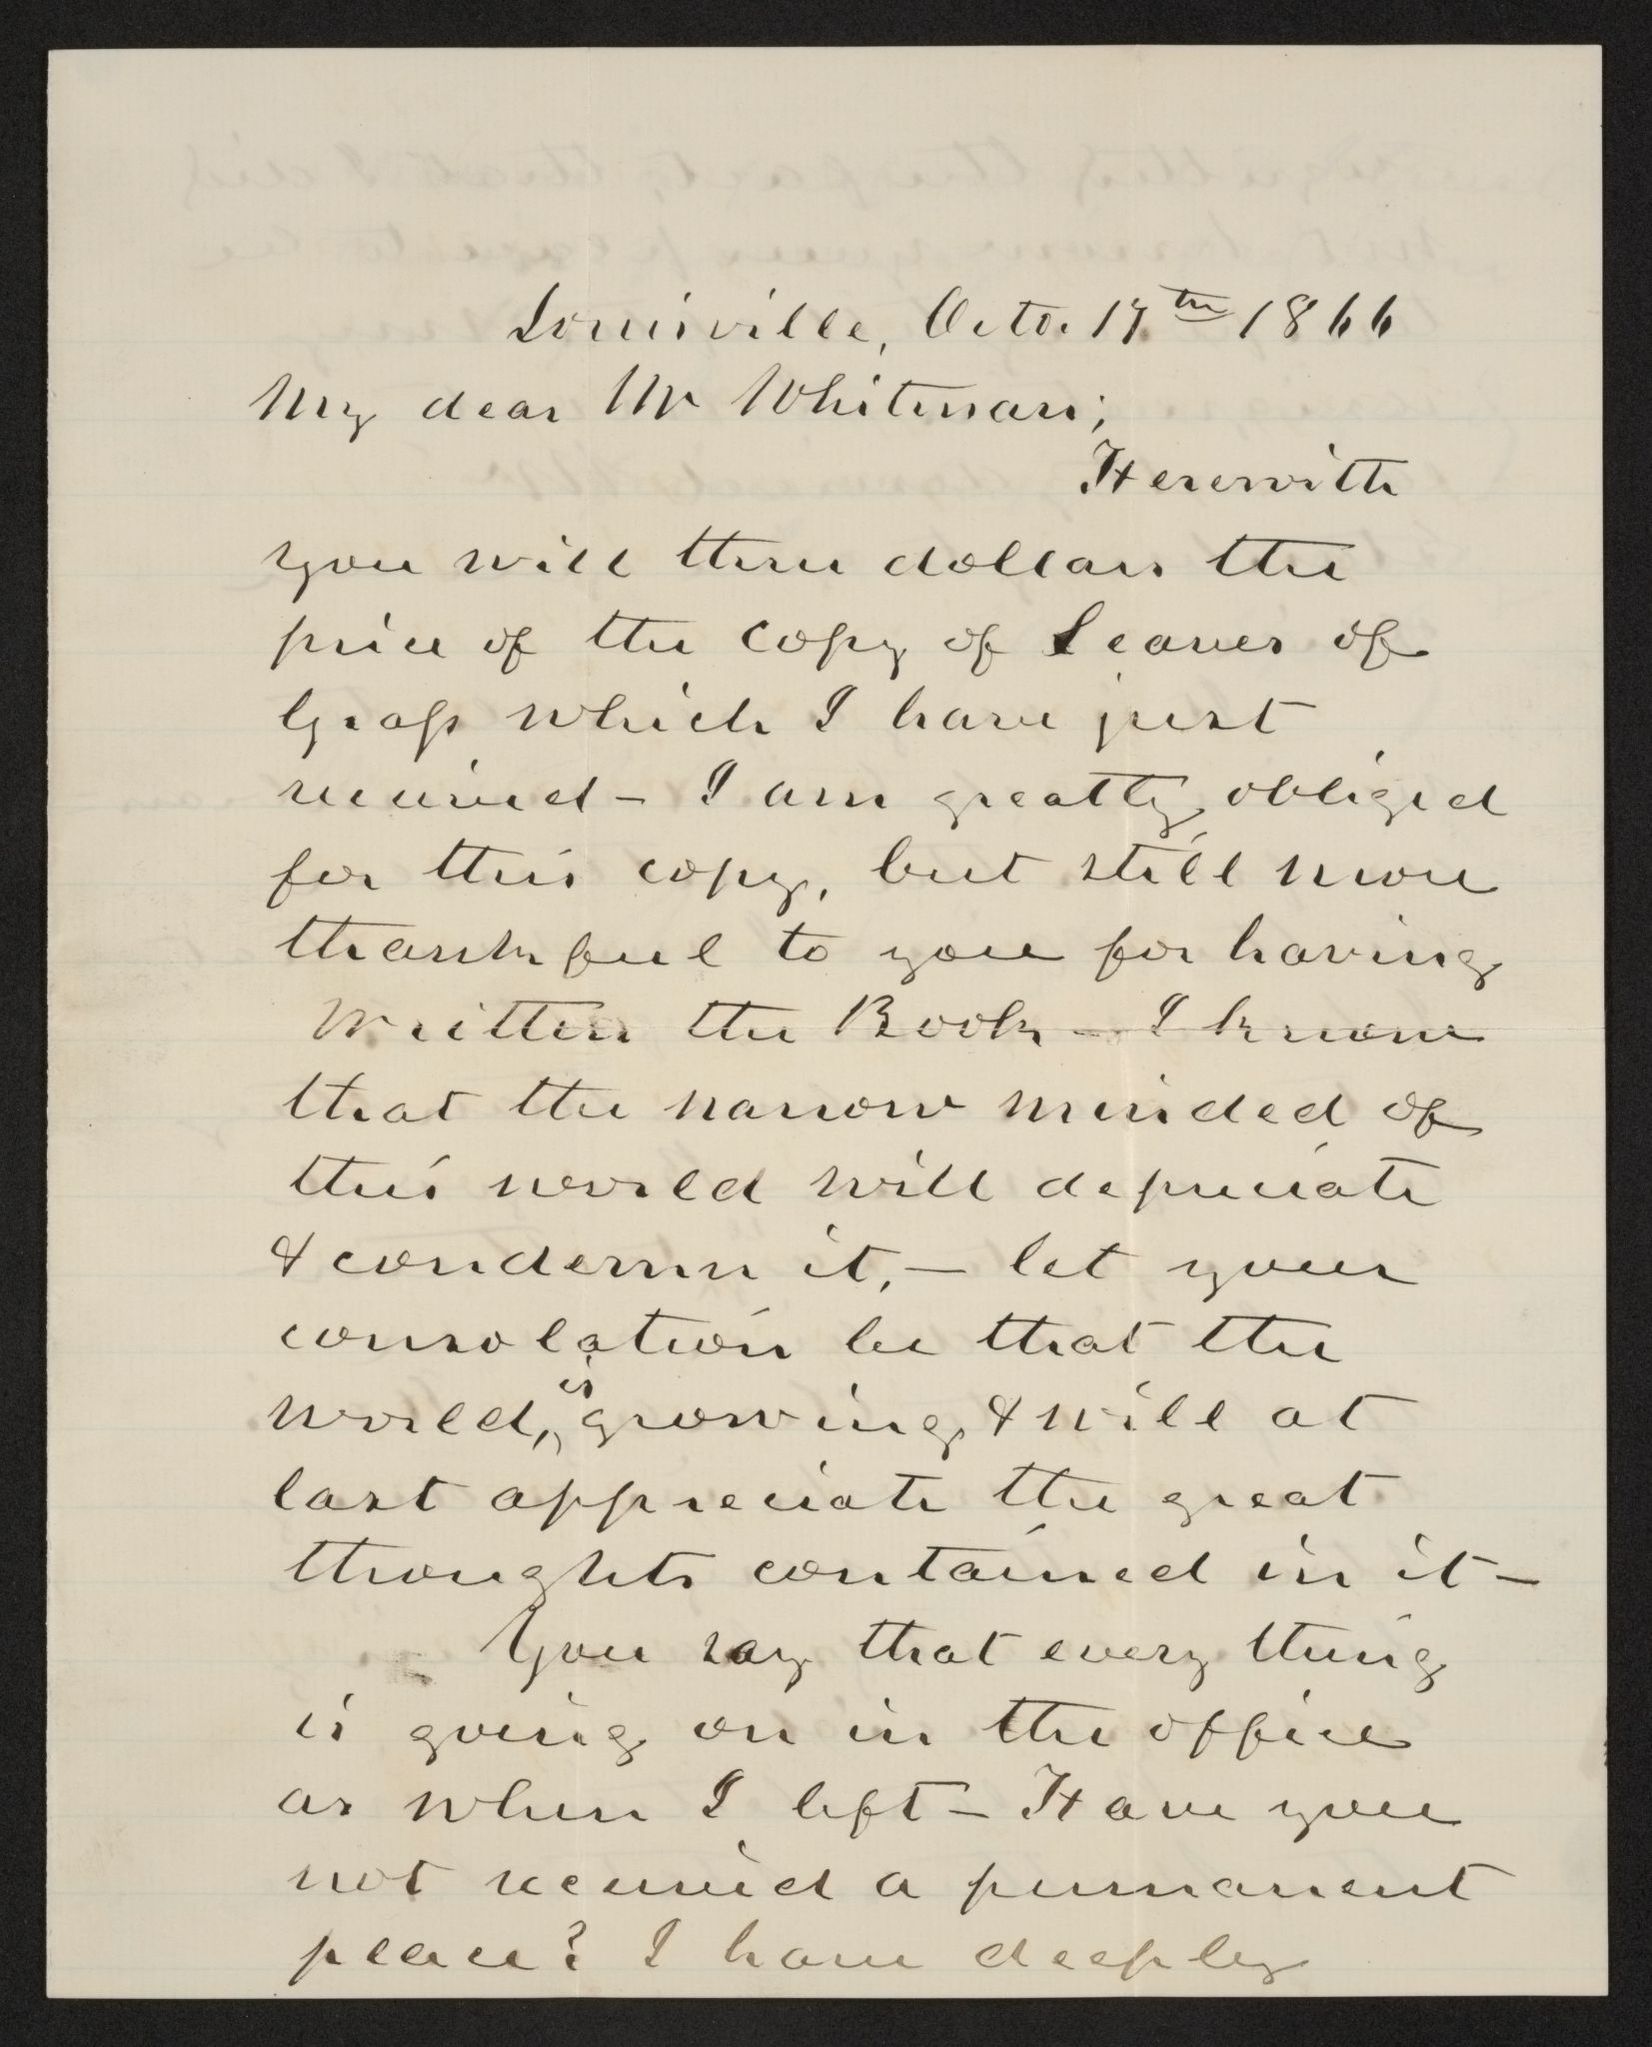 Louisville, Octo. 17th 1866
My dear Mr Whitman;
Herewith
you will three dollars the
price of the copy of Leaves of
Grass which I have just
received – I am greatly obliged
for this copy, but still more
thankful to you for having
written the Book – I know
that the narrow minded of
this world will depreciate
& condemn it, – let your
consolation be that the
world, is growing & will at
last appreciate the great
thoughts contained in it –
You say that every thing
is going on in the office
as when I left – Have you
not received a permanent
place? I have deeply